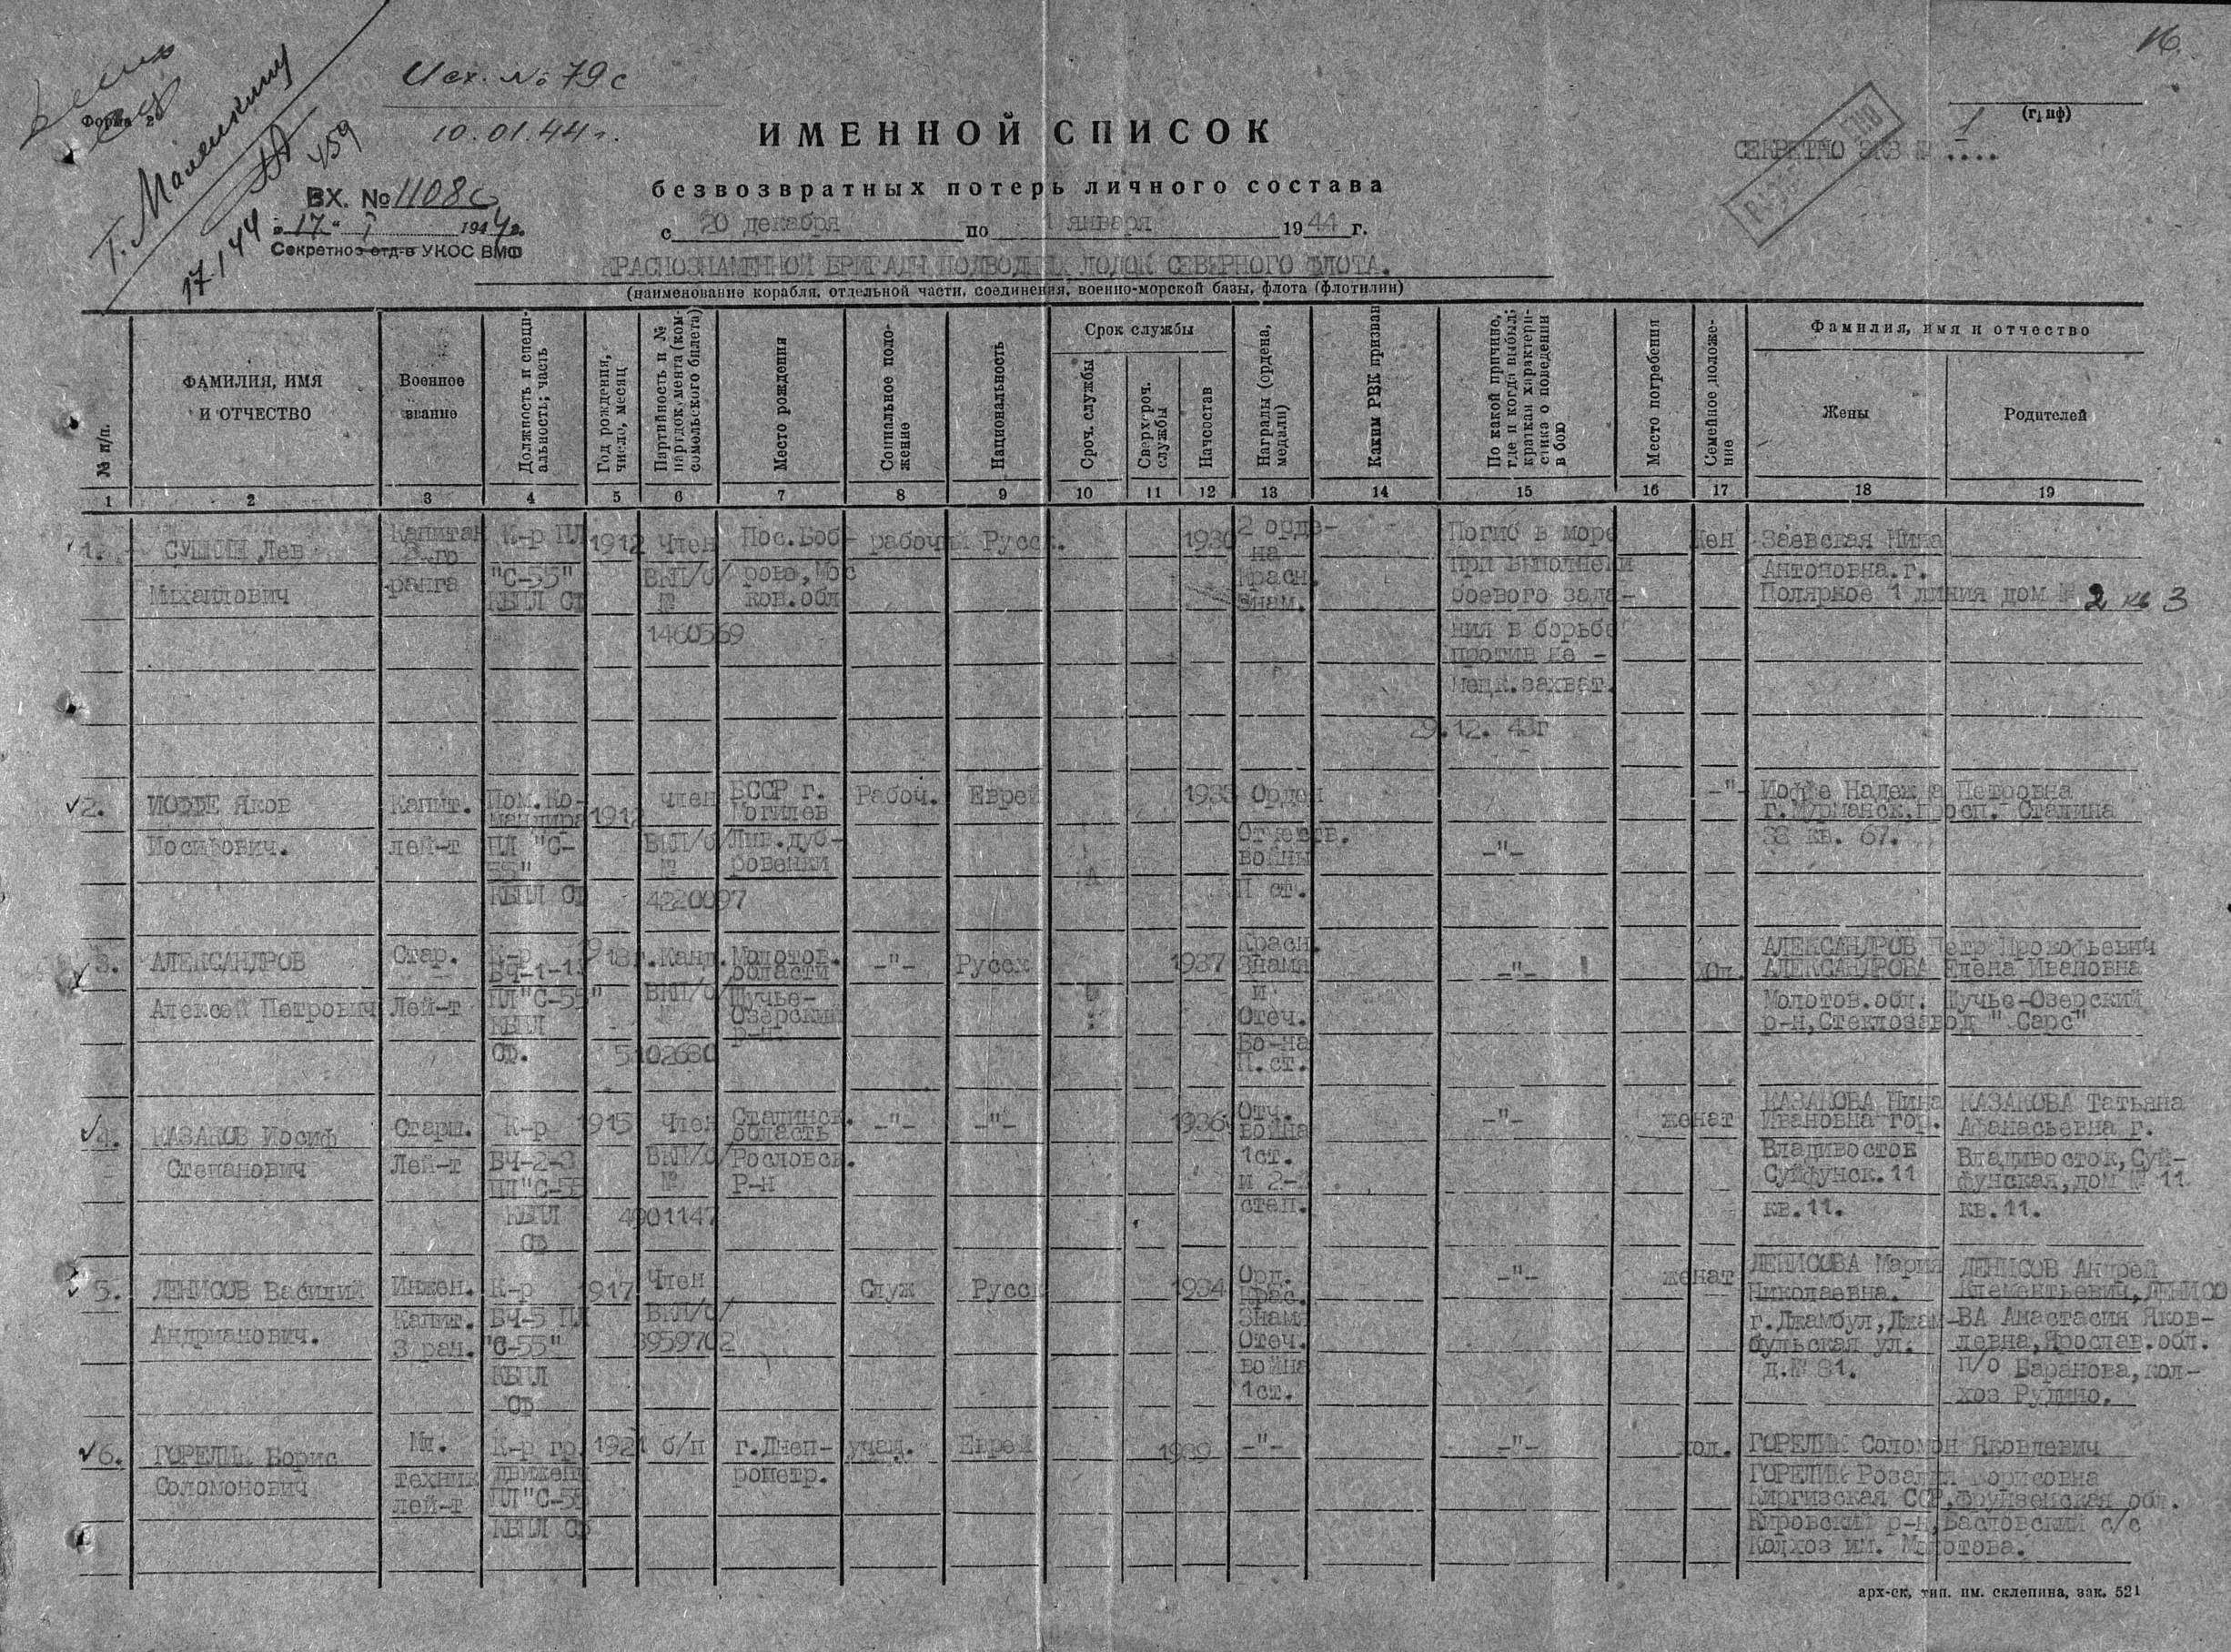 16.
Исх. № 79с
10.01.44 г.
Форма 2
Т. Маленкину
459
17.1.44
(гриф)
СЕКРЕТНО ЭКЗ № 1
ИМЕННОЙ СПИСОК
безвозвратных потерь личного состава
ВХ. № 1108с
"17" I 1944г.
Секретное отд-е УКОС ВМФ
с 20 декабря по 1 января 1944 г.
КРАСНОЗНАМЕННОЙ БРИГАДЫ ПОДВОДНЫХ ЛОДОК СЕВЕРНОГО ФЛОТА.
(наименование корабля, отдельной части, соединения, военно-морской базы, флота (флотилии)
№ п/п.
ФАМИЛИЯ, ИМЯ
И ОТЧЕСТВО
Военное
звание
Должность и специ-
альность; часть
Год рождения,
число, месяц
Партийность и №
партдокумента (ком-
сомольского билета)
Место рождения
Социальное поло-
жение
Национальность
Срок службы
Сроч. службы
Сверхсроч.
службы
Начсостав
Награды (ордена,
медали)
Каким РВК призван
По какой причине,
где и когда выбыл;
краткая характери-
стика о поведении
в бою
Место погребения
Семейное положе-
ние
Фамилия, имя и отчество
Жены
Родителей
1 2 3 4 5 6 7 8 9 10 11 12 13 14 15 16 17 18 19
1.
СУШКИН Лев
Михайлович
Капитан
3-го
ранга
К-р ПЛ
"С-55"
КБПЛ СФ
1912
Член
ВКП/б/
№
1460569
Пос. Боб-
рово, Мос
ков. обл
рабочий
Русск.
1930
2 орде-
на
Красн.
Знам.
Погиб в море
при выполнени
боевого зада-
ния в борьбе
против не -
мецк. захват.
29.12. 43г
Жен
Заевская Нина
Антоновна. г.
Полярное 1 линия дом № 2 кв 3
2.
ИОФФЕ Яков
Иосифович.
Капит.
лей-т
Пом. Ко-
мандира
ПЛ "С-
55"
КБПЛ СФ
1912
член
ВКП/б/
№
4220097
БССР г.
Могилев
Лив. дуб-
ровенки
Рабоч.
Еврей
1933
Орден
Отечеств.
войны
II ст.
-"-
-"-
Иоффе Надежда Петровна
г. Мурманск, просп. Сталина
38 кв. 67.
3.
АЛЕКСАНДРОВ
Алексей Петрович
Стар.
Лей-т
К-р
БЧ-1-1
ПЛ "С-55"
КБПЛ
СФ.
1918г.
Канд.
ВКП/б/
№
5102630
Молотов.
области
Щучье-
Озерский
р-н
-"-
Русск
1937
Красн.
Знамя
и
Отеч.
Во-на
II. ст.
-"-
Хол.
АЛЕКСАНДРОВ Петр Прокофьевич
АЛЕКСАНДРОВА Елена Ивановна
Молотов. обл. Щучье-Озерский
р-н, Стеклозавод "Сарс"
4.
КАЗАКОВ Иосиф
Степанович
Старш.
Лей-т
К-р
БЧ-2-3
ПЛ "С-55
КБПЛ
СФ
1915
Член
ВКП/б/
№
4901147
Сталинск.
область
Рословск.
Р-н
-"-
-"-
1936
Отч.
война
1ст.
и 2-й
степ.
-"-
женат
КАЗАКОВА Нина
Ивановна гор.
Владивосток
Суйфунск. 11
кв. 11.
КАЗАКОВА Татьяна
Афанасьевна г.
Владивосток, Суй-
фунская, дом № 11
кв. 11.
5.
ДЕНИСОВ Василий
Андрианович.
Инжен.
Капит.
3 ран.
К-р
БЧ-5 ПЛ
"С-55"
КБПЛ
СФ
1917
Член
ВКП/б/
3959702
Служ
Русск
1934
Орд.
Крас.
Знамя
Отеч.
война
1ст.
-"-
женат
ДЕНИСОВА Мария
Николаевна.
г. Джамбул, Джам-
бульская ул.
д.№ 81.
ДЕНИСОВ Андрей
Клементьевич, ДЕНИСО
ВА Анастасия Яков-
левна, Ярослав. обл.
п/о Баранова, кол-
хоз Рудино.
6.
ГОРЕЛИК Борис
Соломонович
Мл.
техник
лей-т
К-р гр.
движени
ПЛ "С-55
КБПЛ СФ
1921
б/п
г. Днеп-
ропетр.
учащ.
Еврей
1939
-"-
-"-
хол.
ГОРЕЛИК Соломон Яковлевич
ГОРЕЛИК Розалия Борисовна
Киргизская ССР, Фрунзенская обл.
Кировский р-н, Басловский с/с
Колхоз им. Молотова.
арх-ск, тип. им. склепина, зак. 521